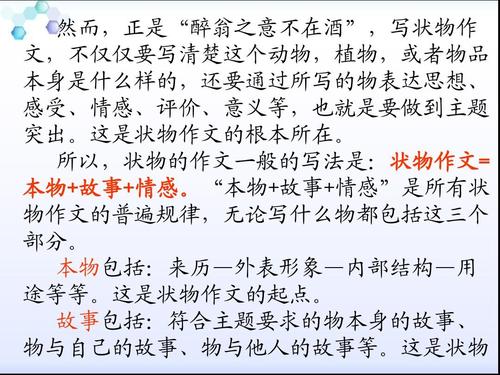 然而，正是“醉翁之意不在酒”，写状物作
文，不仅仅要写清楚这个动物，植物，或者物品
本身是什么样的，还要通过所写的物表达思想、
感受、情感、评价、意义等，也就是要做到主题
突出。这是状物作文的根本所在。
所以，状物的作文一般的写法是：状物作文=
本物+故事+情感。“本物+故事+情感”是所有状
物作文的普遍规律，无论写什么物都包括这三个
部分。
本物包括：来历—外表形象—内部结构—用
途等等。这是状物作文的起点。
故事包括：符合主题要求的物本身的故事、
物与自己的故事、物与他人的故事等。这是状物